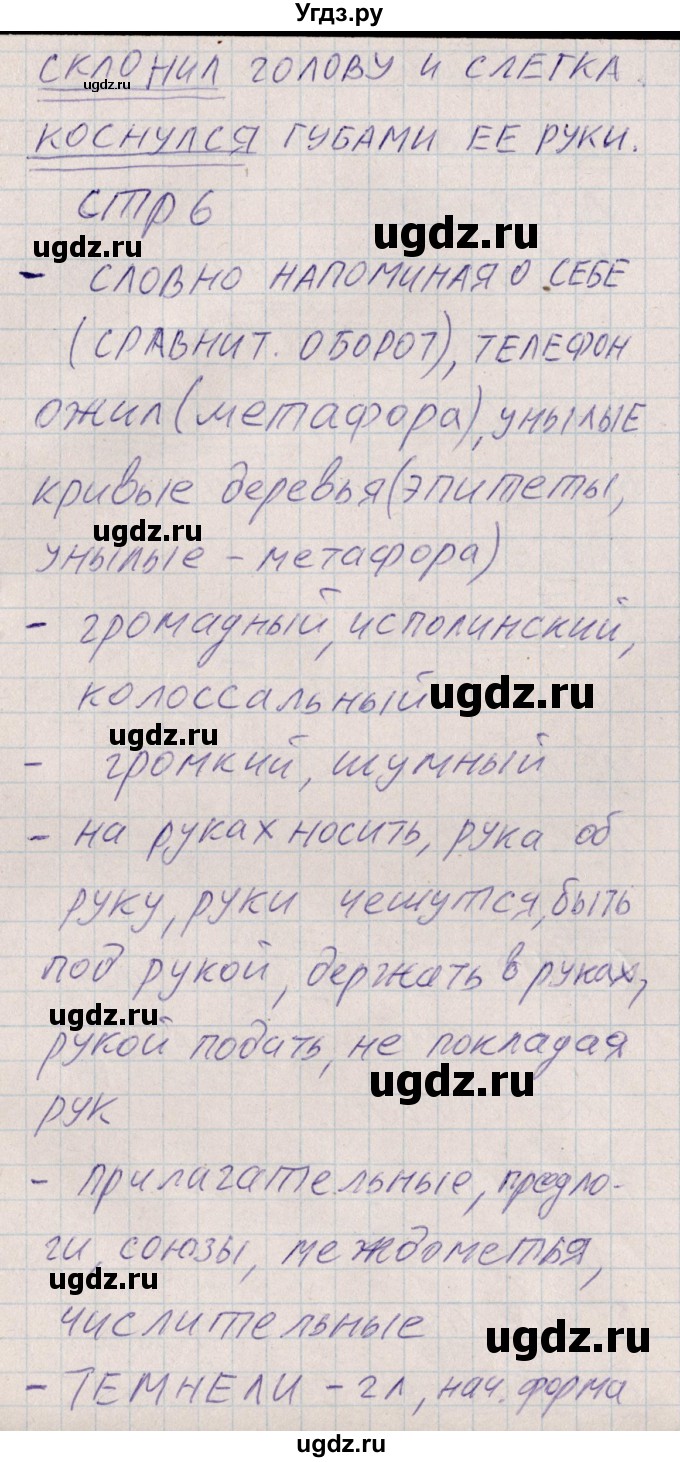 Угдз.ру
СКЛОНИЛ ГОЛОВУ И СЛЕГКА
ugdz.ru
КОСНУЛСЯ ГУБАМИ ЕЕ РУКИ.
СТР 6
ugdz.ru
ugdz.ru
- СЛОВНО НАПОМИНАЯ О СЕБЕ
(СРАВНИТ. ОБОРОТ), ТЕЛЕФОН
ОЖИЛ (метафора), УНЫЛЫЕ
кривые деревья (эпитеты,
ugdz.ru
унылые - метафора)
- громадный, исполинский,
колоссальный
ugdz.ru
ugdz.ru
- громкий, шумный
- на руках носить, рука об
руку, руки чешутся, быть
под рукой, держать в руках,
ugdz.ru
рукой подать, не покладая
ugdz.ru
рук
- прилагательные, предло-
ги, союзы, междометья,
ugdz.ru
числительные
ugdz.ru
- ТЕМНЕЛИ - гл, нач. форма
ugdz.ru